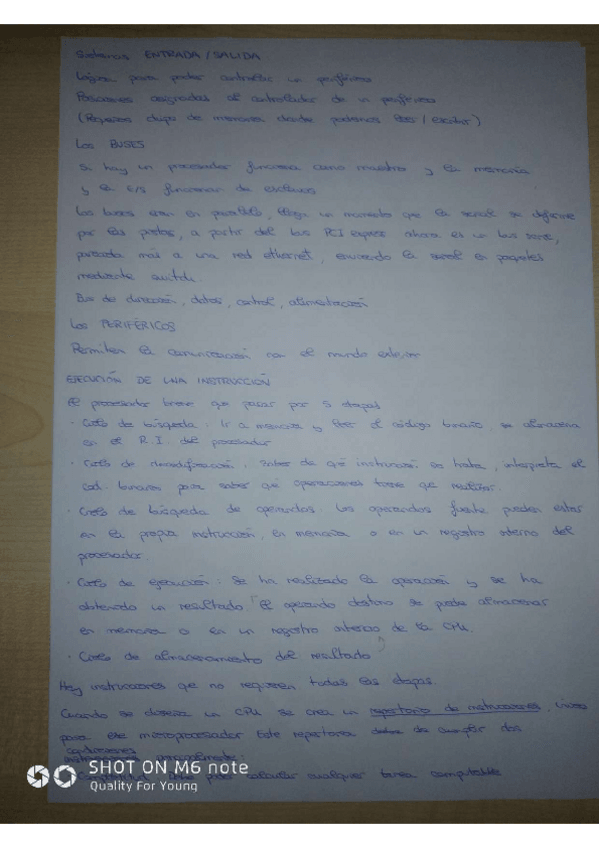 Sistemas ENTRADA / SALIDA
Lógica para poder controlar un periférico
Posiciones asignadas al controlador de un periférico
(Pequeños chips de memoria donde podemos leer / escribir)
Los BUSES
Si hay un procesador funciona como maestro y la memoria
y la E/S funcionan de esclavos
Los buses eran en paralelo, llega un momento que la señal se deforma
por las pistas, a partir del bus PCI express ahora es un bus serie,
parecido más a una red ethernet, enviando la señal en paquetes
mediante switch.
Bus de dirección, datos, control, alimentación
Los PERIFÉRICOS
Permiten la comunicación con el mundo exterior
EJECUCIÓN DE UNA INSTRUCCIÓN
El procesador tiene que pasar por 5 etapas
· Ciclo de búsqueda: Ir a memoria y leer el código binario, se almacena
en el R.I. del procesador
· Ciclo de decodificación: Saber de qué instrucción se trata, interpreta el
cod. binario para saber qué operaciones tiene que realizar.
· Ciclo de búsqueda de operandos: Los operandos fuente pueden estar
en la propia instrucción, en memoria o en un registro interno del
procesador.
· Ciclo de ejecución: Se ha realizado la operación y se ha
obtenido un resultado. El operando destino se puede almacenar
en memoria o en un registro interno de la CPU.
· Ciclo de almacenamiento del resultado
Hay instrucciones que no requieren todas las etapas.
Cuando se diseña un CPU se crea un repertorio de instrucciones, único
para ese microprocesador. Este repertorio debe de cumplir dos
condiciones
· Debe poder calcular cualquier tarea computable
SHOT ON M6 note
Quality For Young